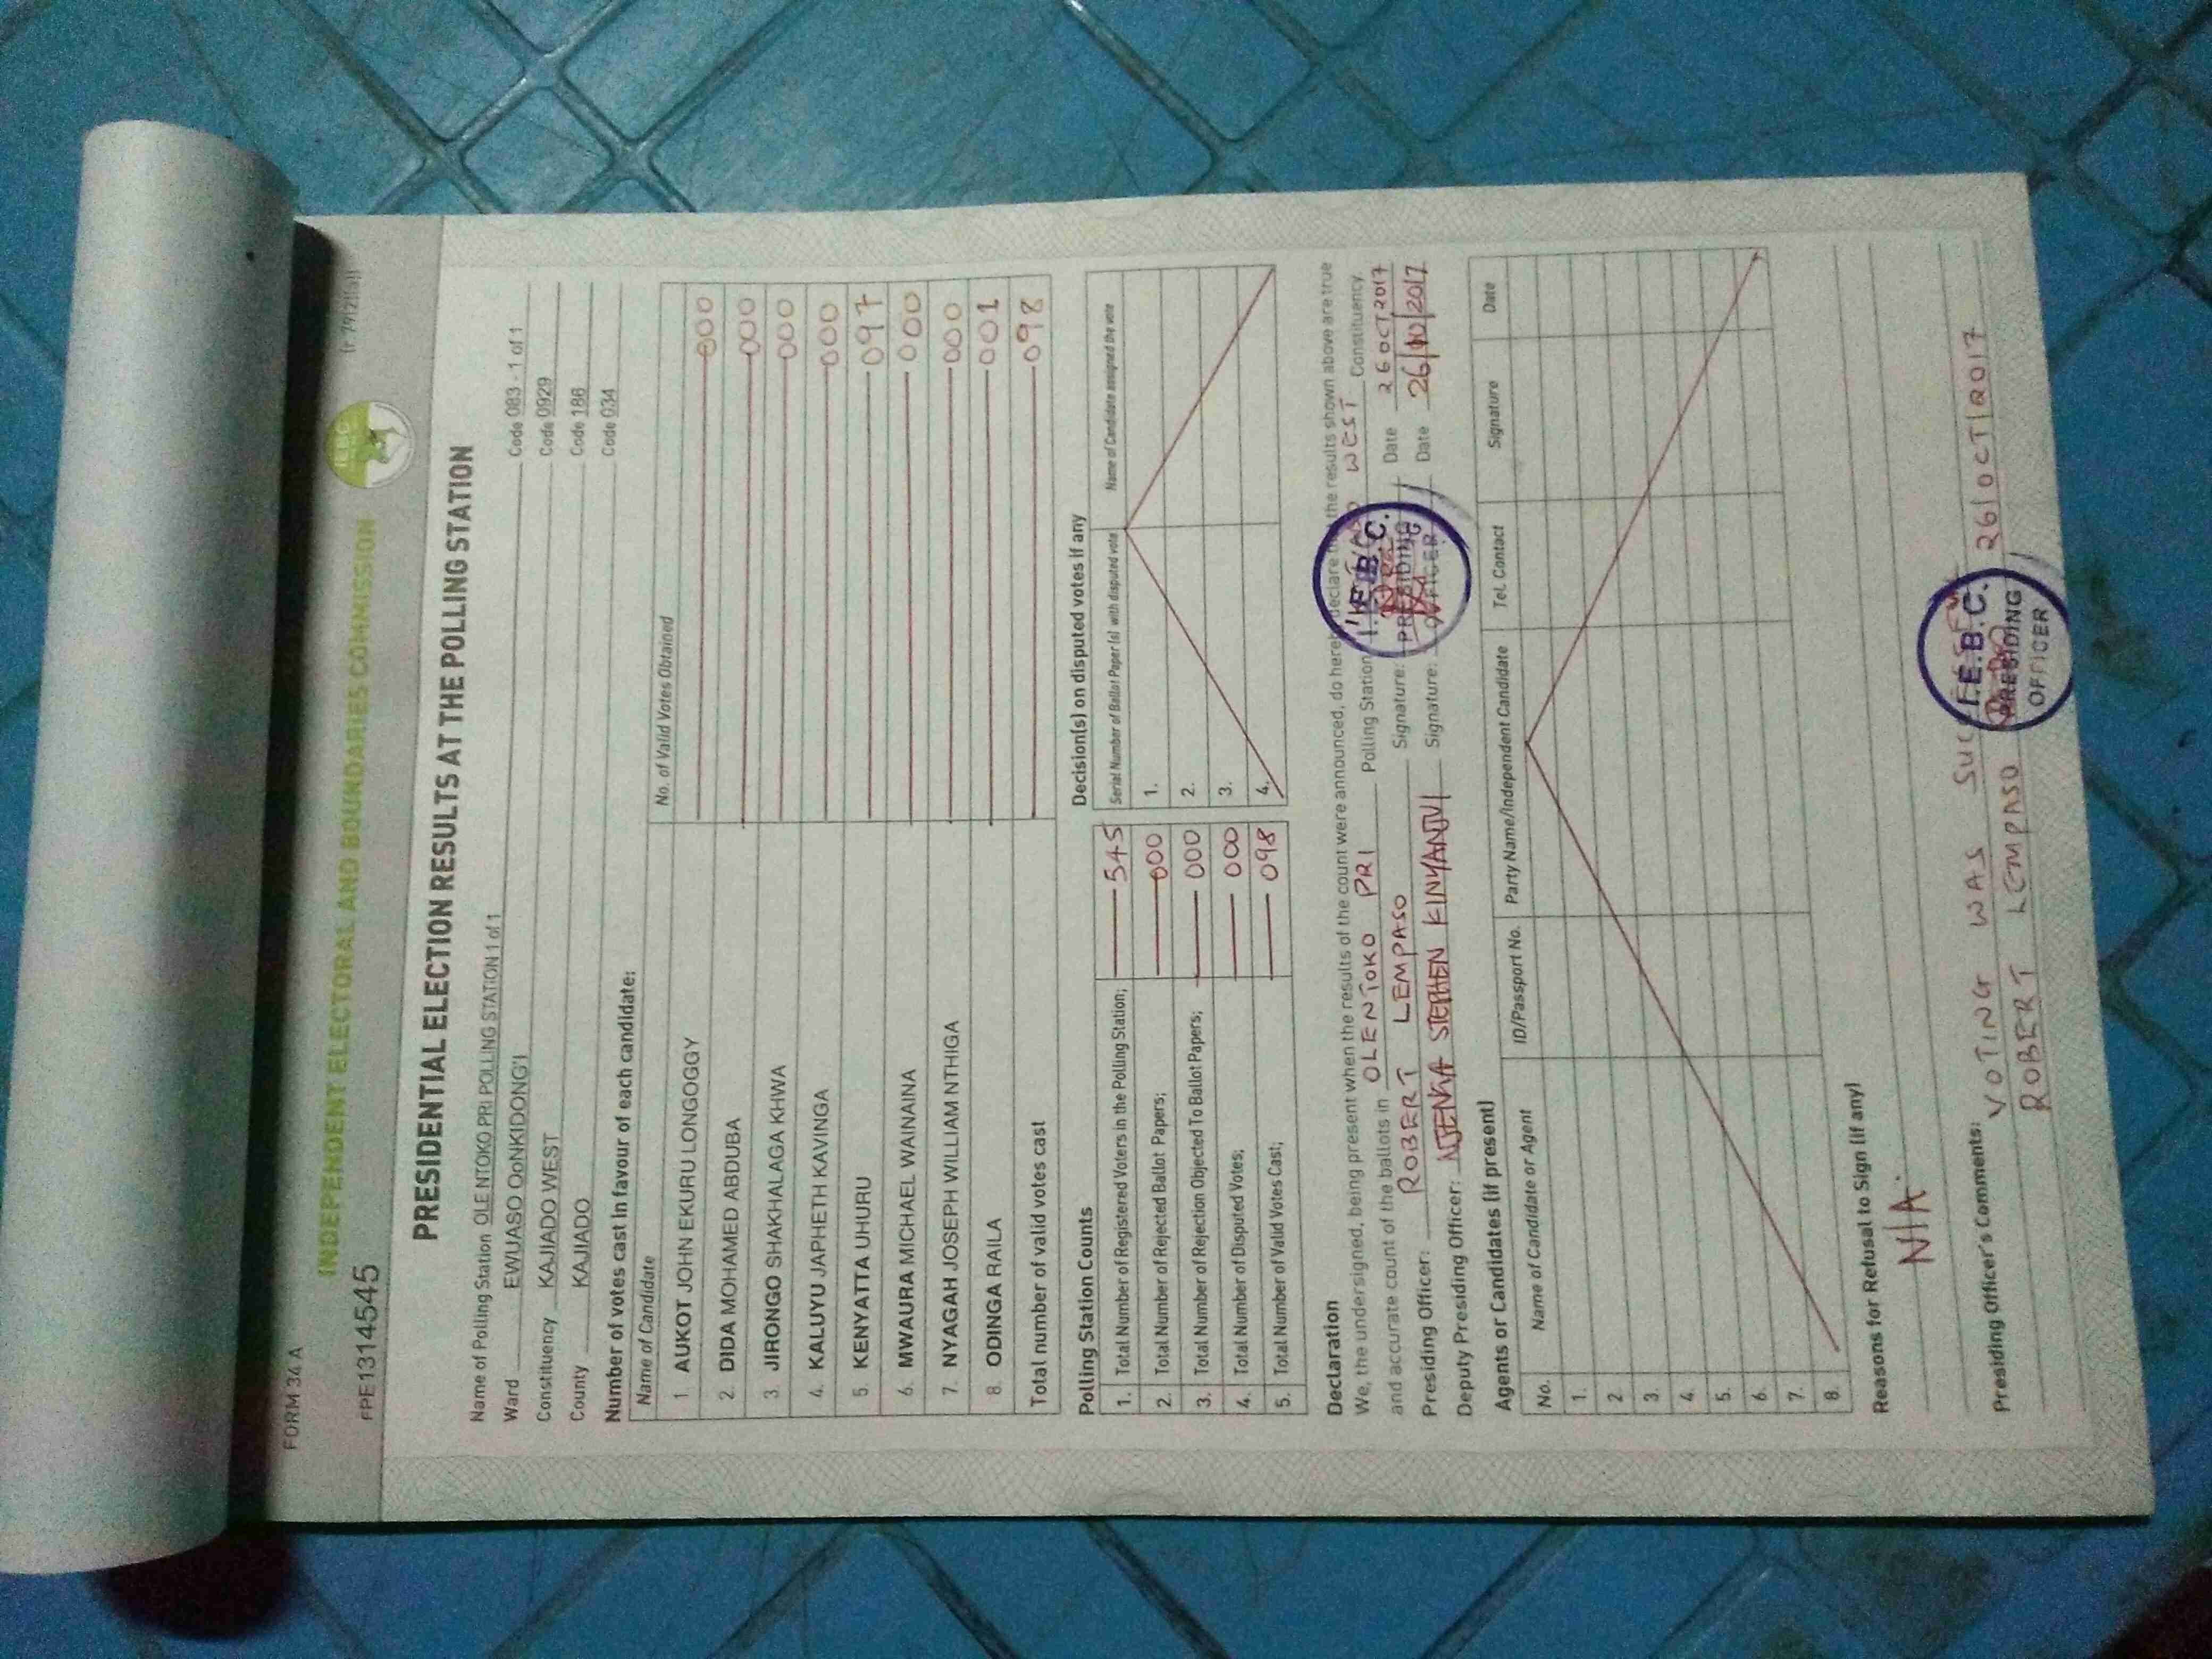 FORM 34 A
(r. 79(2)(a))
INDEPENDENT ELECTORAL AND BOUNDARIES COMMISSION
IEBC
FPE1314545
PRESIDENTIAL ELECTION RESULTS AT THE POLLING STATION
Name of Polling Station OLE NTOKO PRI POLLING STATION 1 of 1 Code 083 - 1 of 1
Ward EWUASO OoNKIDONG'I Code 0929
Constituency KAJIADO WEST Code 186
County KAJIADO Code 034
Number of votes cast in favour of each candidate:
Name of Candidate No. of Valid Votes Obtained
1. AUKOT JOHN EKURU LONGOGGY 000
2. DIDA MOHAMED ABDUBA 000
3. JIRONGO SHAKHALAGA KHWA 000
4. KALUYU JAPHETH KAVINGA 000
5. KENYATTA UHURU 097
6. MWAURA MICHAEL WAINAINA 000
7. NYAGAH JOSEPH WILLIAM NTHIGA 000
8. ODINGA RAILA 001
Total number of valid votes cast 098
Polling Station Counts
1. Total Number of Registered Voters in the Polling Station; 545
2. Total Number of Rejected Ballot Papers; 000
3. Total Number of Rejection Objected To Ballot Papers; 000
4. Total Number of Disputed Votes; 000
5. Total Number of Valid Votes Cast; 098
Decision(s) on disputed votes if any
Serial Number of Ballot Paper (s) with disputed vote Name of Candidate assigned the vote
1.
2.
3.
4.
Declaration
We, the undersigned, being present when the results of the count were announced, do hereby declare the results shown above are true
and accurate count of the ballots in OLENTOKO PRI Polling Station WEST Constituency.
Presiding Officer: ROBERT LEMPASO Signature: Date 26 OCT 2017
Deputy Presiding Officer: NJENGA STEPHEN KINYANJUI Signature: Date 26/10/2017
I.E.B.C.
PRESIDING
OFFICER
Agents or Candidates (if present)
No. Name of Candidate or Agent ID/Passport No. Party Name/Independent Candidate Tel. Contact Signature Date
1.
2
3.
4.
5.
6.
7.
8.
Reasons for Refusal to Sign (if any)
N/A.
Presiding Officer's Comments: VOTING WAS
ROBERT LEMPASO 26/OCT/2017
I.E.B.C.
PRESIDING
OFFICER